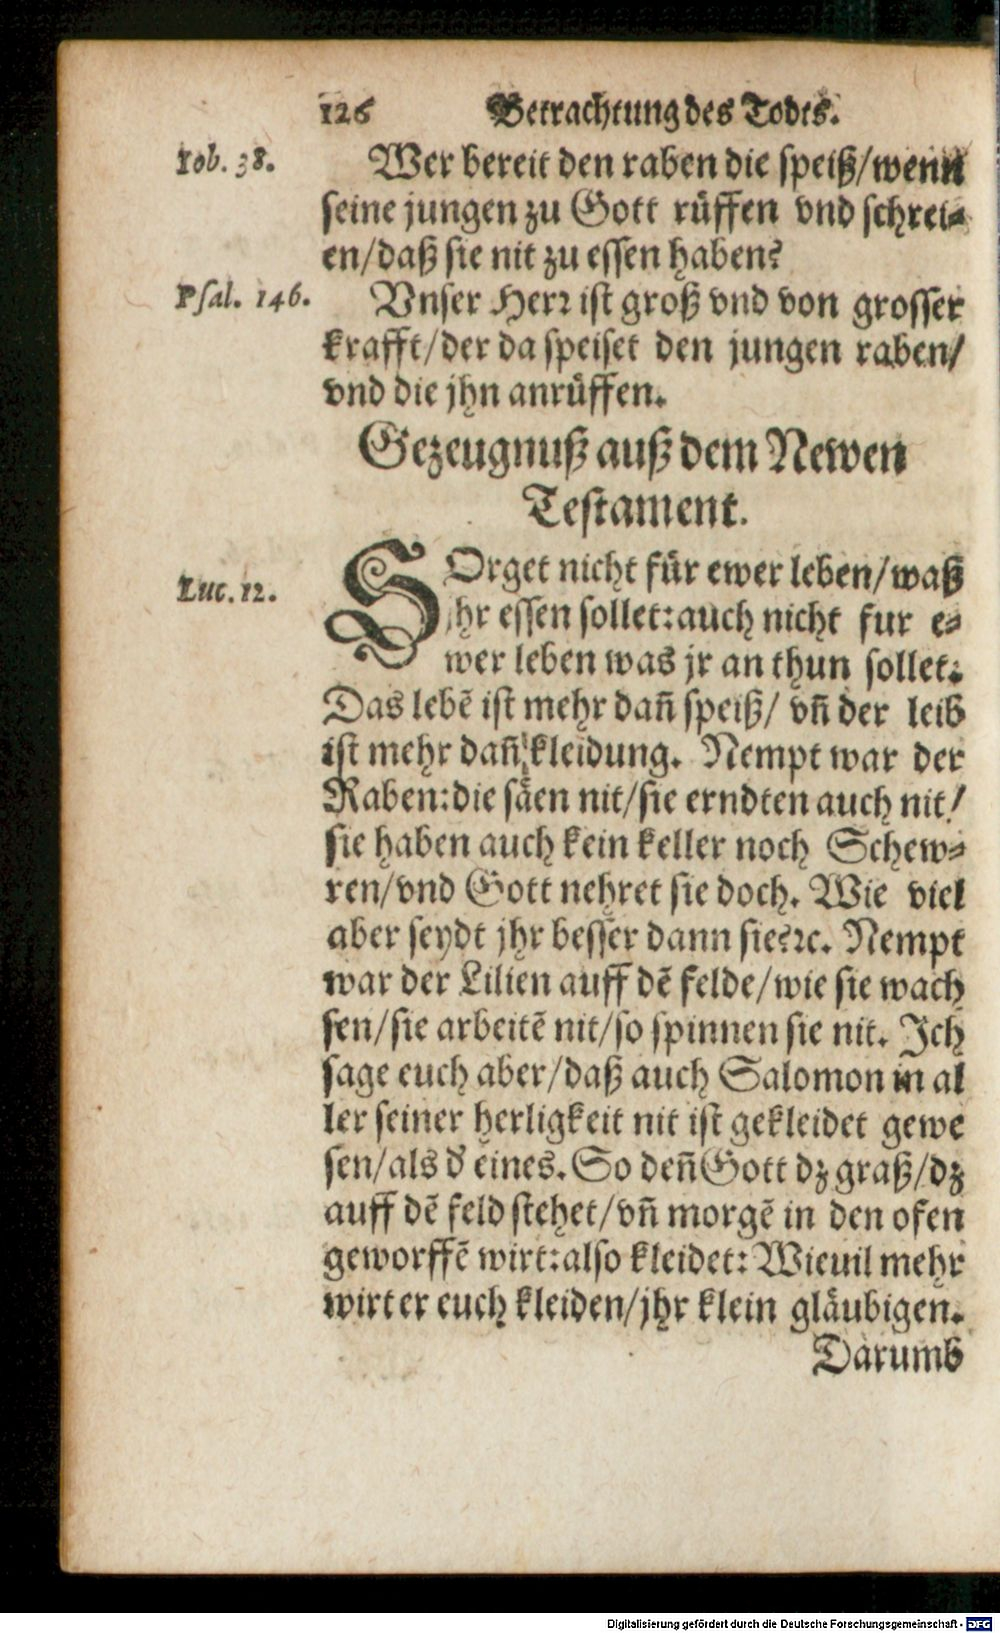 126 Betrachtung des Todts.
Iob. 38. Wer bereit den raben die speiß/wenn
seine jungen zu Gott rüffen vnd schrei⸗
en/daß sie nit zu essen haben?
Psal. 146. Vnser Herr ist groß vnd von grosser
krafft/der da speiset den jungen raben/
vnd die jhn anrüffen.
Gezeugnuß auß dem Newen
Testament.
Luc. 12. SOrget nicht für ewer leben/waß
jhr essen sollet:auch nicht fur e⸗
wer leben was jr an thun sollet:
Das lebē ist mehr dan̄ speiß/ vn̄ der leib
ist mehr dan̄ kleidung. Nempt war der
Raben:die säen nit/sie erndten auch nit/
sie haben auch kein keller noch Schew⸗
ren/vnd Gott nehret sie doch. Wie viel
aber seydt jhr besser dann sie?ꝛc. Nempt
war der Lilien auff dē felde/wie sie wach
sen/sie arbeitē nit/so spinnen sie nit. Ich
sage euch aber/daß auch Salomon in al
ler seiner herligkeit nit ist gekleidet gewe
sen/als d' eines. So den̄ Gott dz graß/dz
auff dē feld stehet/vn̄ morgē in den ofen
geworffē wirt:also kleidet: Wieuil mehr
wirt er euch kleiden/jhr klein gläubigen.
Darumb
Digitalisierung gefördert durch die Deutsche Forschungsgemeinschaft - DFG